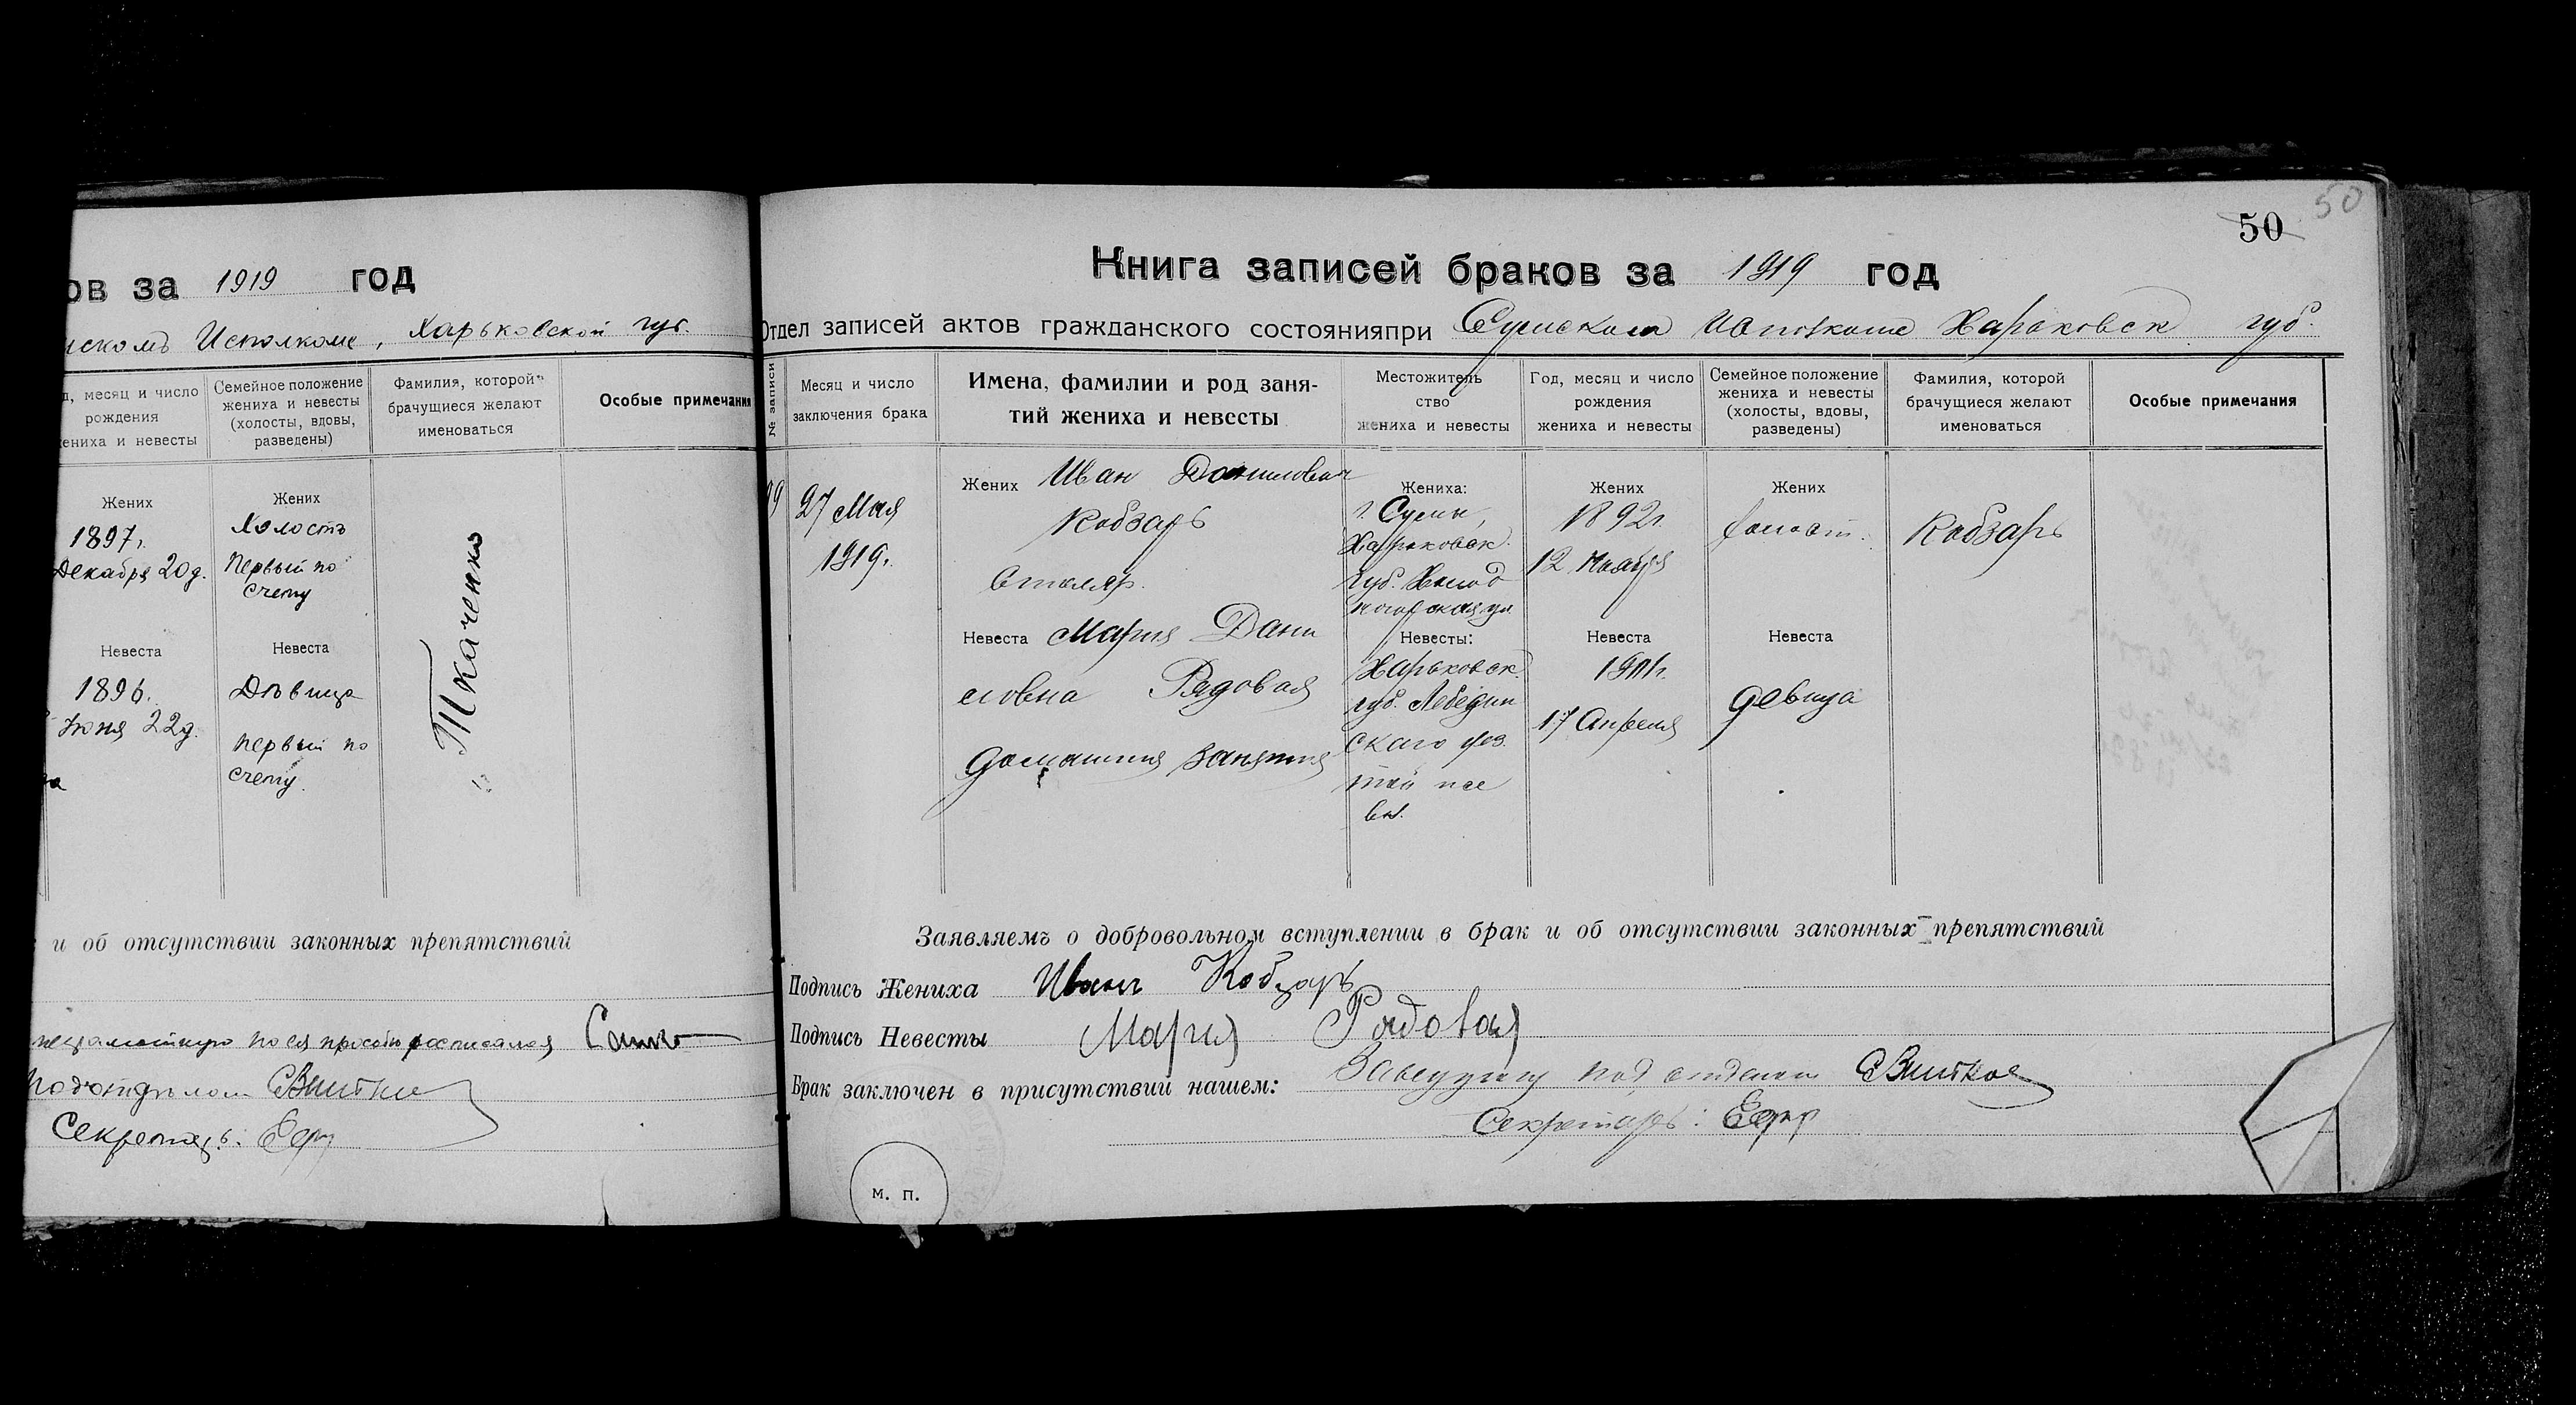 ов за 1919 год
иском Исполкоме, Харьковской губ.
д, месяц и число
рождения
ениха и невесты
Семейное положение
жениха и невесты
(холосты, вдовы,
разведены)
Фамилия, которой
брачущиеся желают
именоваться
Особые примечания
Жених
1897г.
Декабря 20д.
Жених
Холостъ
Первый по
счету
Невеста
1896.
Июня 22д.
Невеста
Дѣвица
Первый по
счету.
Ткаченко
и об отсутствии законных препятствий
неграмотную по ея просьбе расписался
Подотделом
Секретарь:
50
50
Книга записей браков за 1919 год
Отдел записей актов гражданского состоянияпри Сумском Исполкоме Харьковск губ.
№ записи
Месяц и число
заключения брака
Имена, фамилии и род заня-
тий жениха и невесты
Местожитель
ство
жениха и невесты
Год, месяц и число
рождения
жениха и невесты
Семейное положение
жениха и невесты
(холосты, вдовы,
разведены)
Фамилия, которой
брачущиеся желают
именоваться
Особые примечания
99
27 Мая
1919г.
Жених Иван Данилович
Кобзарь
Столяр.
Невеста Мария Дани
ловна Рядовая
домашния занятия
Жениха:
г. Сумы,
Харьковск.
губ. Холод
ногорская ул
Невесты:
Харьковск.
губ. Лебедин
скаго уез.
той же
вол.
Жених
1892г.
12 Ноября
Невеста
1901г.
17 Апреля
Жених
холост.
Невеста
девица
Кобзарь
Заявляемъ о добровольном вступлении в брак и об отсутствии законных препятствий
Подпись Жениха Иван Кобзарь
Подпись Невесты Мария Рядовая
Брак заключен в присутствий нашем: Заведующий подотделом
Секретарь:
м. п.